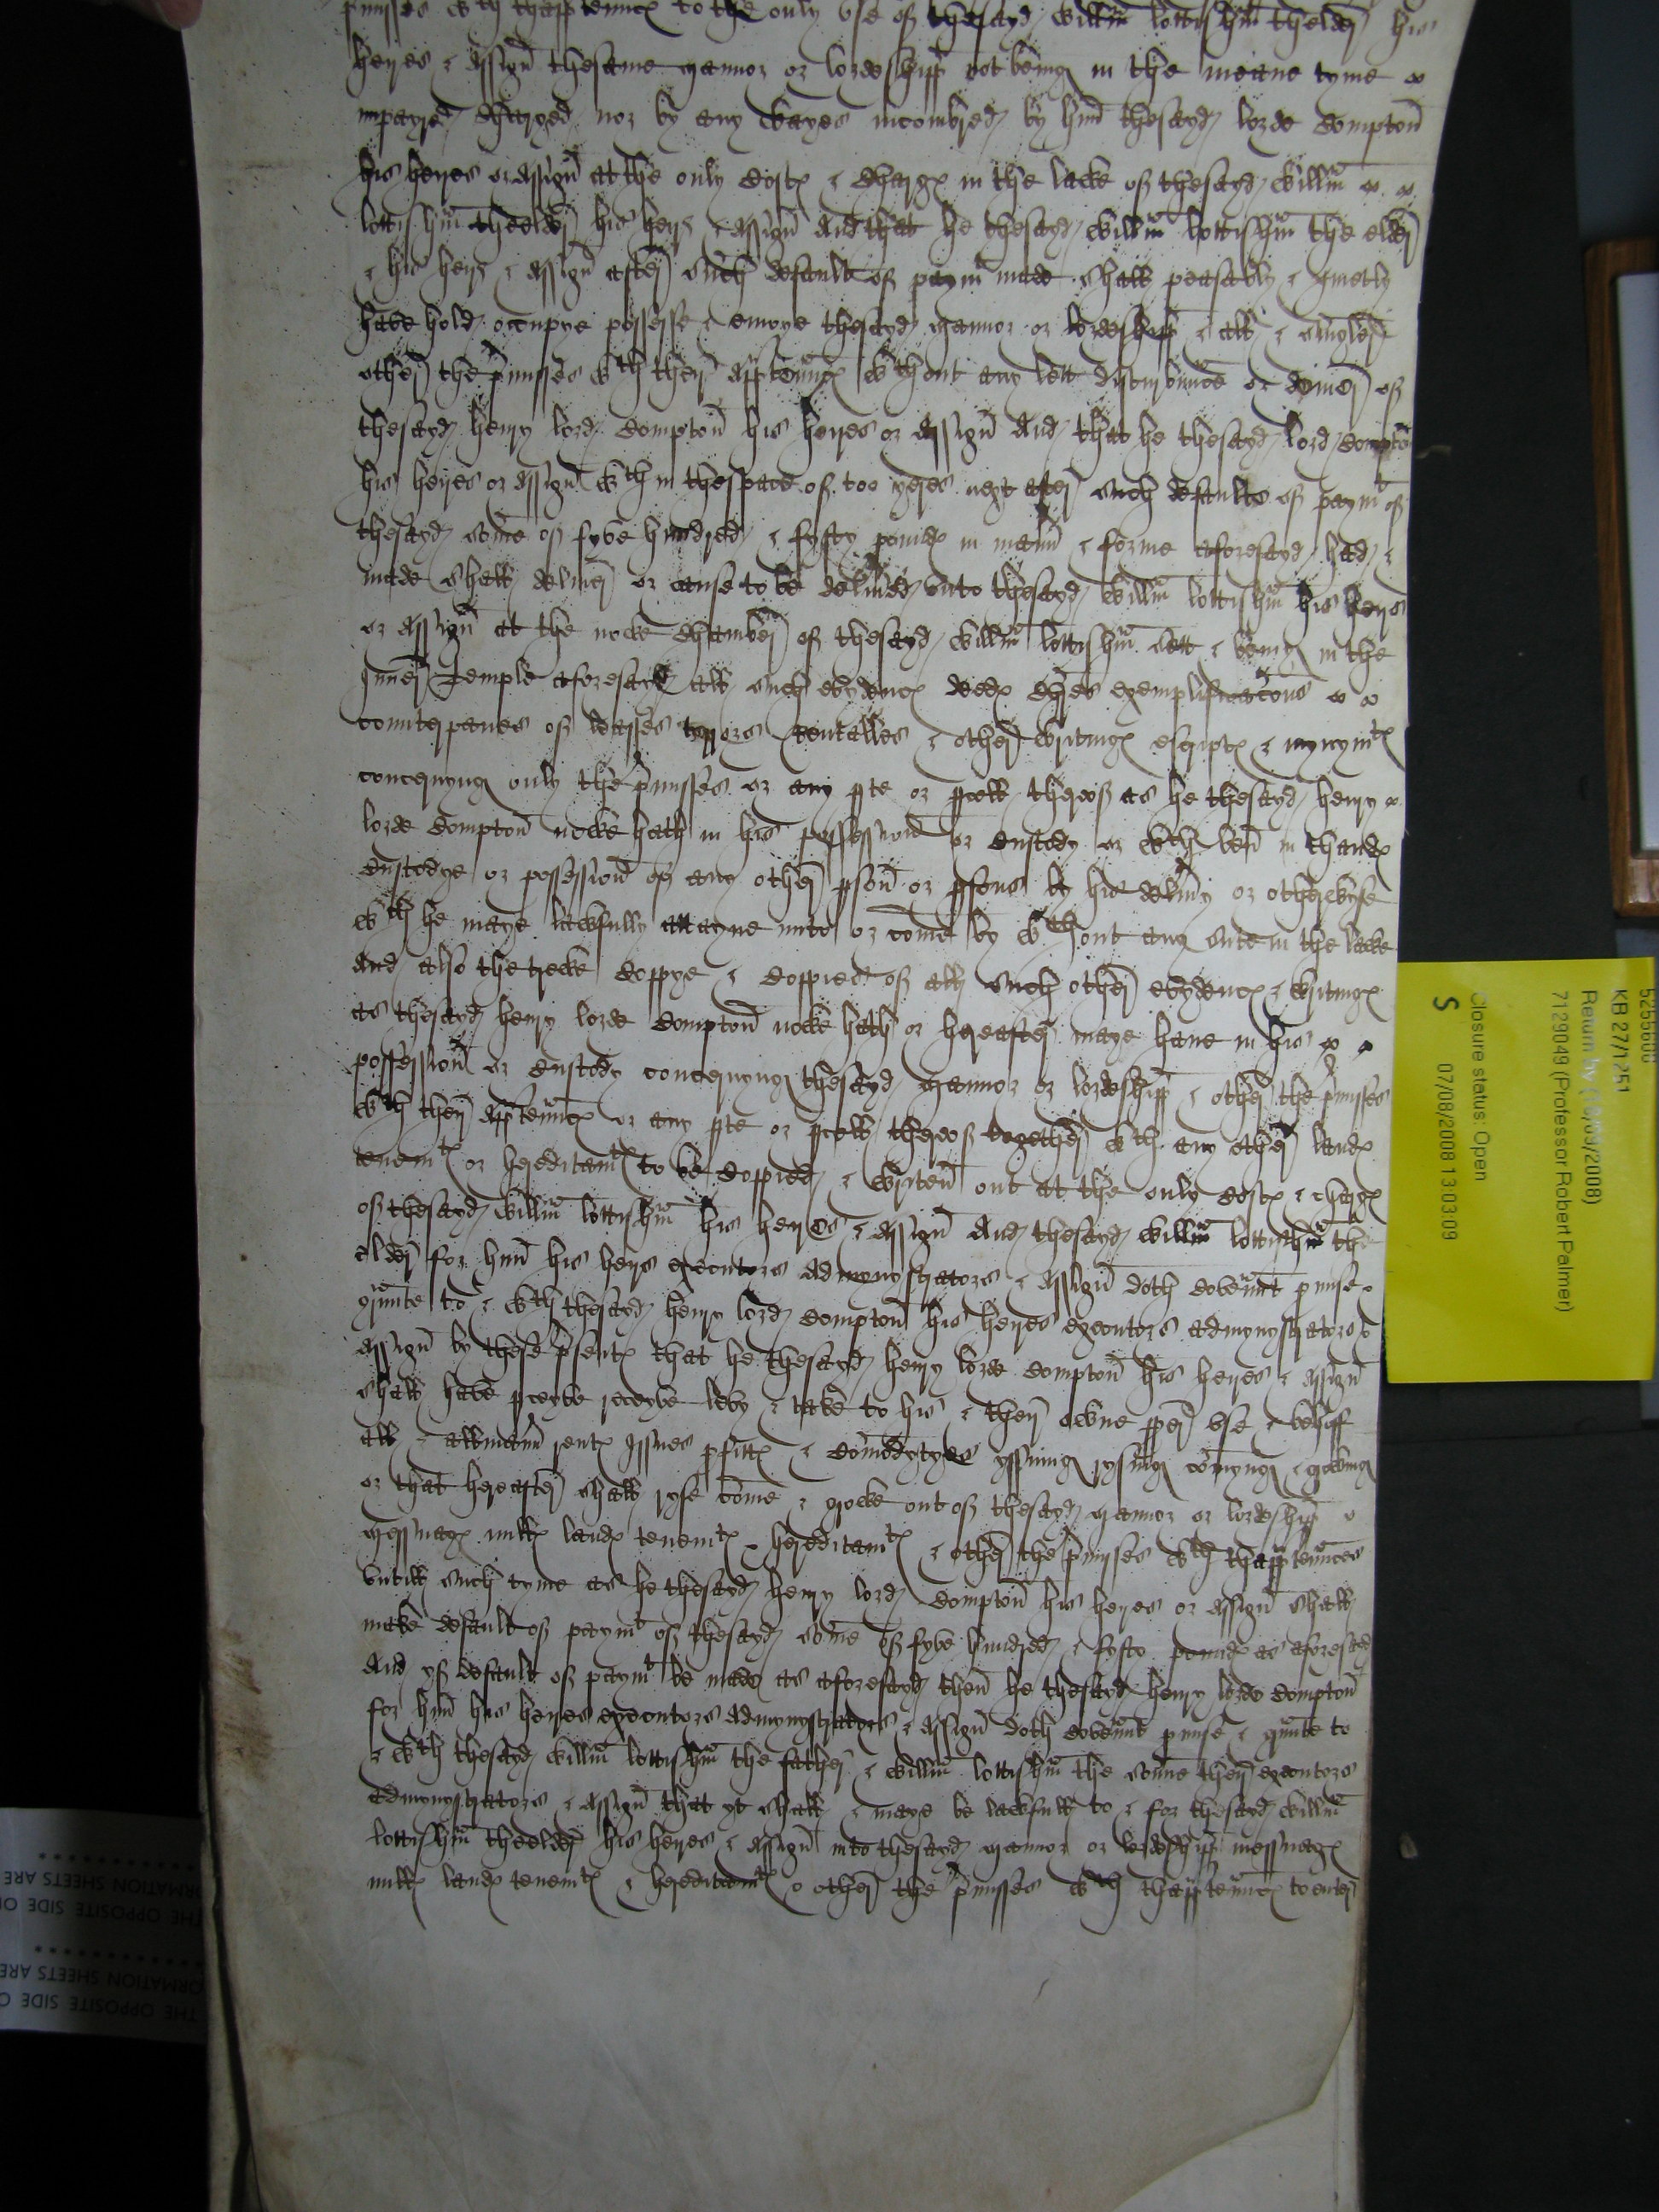 p̄misses wth thapp̄tenn̄cꝭ to the only vse of thesayd Willm̄ lottishm̄ thelder his
heyres & assign̄ thesame mannor or lordeshipp not being in the meane tyme
impayred charged nor by any wayes incombred by him̄ thesayd lorde Compton̄
his heyres or assign̄ at the only costꝭ & chargꝭ in the lawe of thesayd Willm̄
lottishm̄ theelder his heyrꝭ & assign̄ And that he thesayd Willm̄ lottishm̄ the elder
& his heyrꝭ & assign̄ after such default of paymt made shall peasably & quietly
have hold occupye possesse & enioye thesayd mannor or lordeshipp & all & singler
other the p̄misses wth their app̄tenn̄cꝭ wthout any lett disturbunce or denier of
thesayd henry lord Compton̄ his heyres or assign̄ And that he thesayd lord Compton̄
his heyres or assign̄ wthin thespace of too yeres next after such defaulte of paymt of
thesayd some of fyve hundred & fyfty poundꝭ in mann̄ & forme aforesayd had &
made shall deliuer or cause to be deliuĕd vnto thesayd Willm̄ lottishm̄ his heyrs
or assign̄ at the nowe chamber of thesayd Willm̄ lottishm̄ sett & being in the
Inner Temple aforesayd all such evydencꝭ dedꝭ chres exemplificac̄ons
counterpanes of leasses terrors rentalles & other writingꝭ escriptꝭ & mynymtꝭ
concernyng only the p̄misses or any p̱te or p̱cell therof as he thesayd henry
lorde Compton̄ nowe hath in his possession̄ or custody or wch ben̄ in thandꝭ
custodye or possession̄ of any other p̱son̄ or p̱sons by his deliuy or otherwyse
wch he maye lawfully attayne vnto or come by wthout any sute in the lawe
And also the trewe coppye & coppies of all such other evydencꝭ & writingꝭ
as thesayd henry lorde Compton̄ nowe hath or hereafter maye haue in his
possession̄ or custody concernyng thesayd mannor or lordeshipp & other the p̄misses
wth their app̄tenn̄cꝭ or any p̱te or p̱cell therof together wth any other landꝭ
tenemtꝭ or hereditamtꝭ to be coppied & writen̄ out at the only costꝭ & chargꝭ
of thesayd Willm̄ lottishm̄ his heyres & assign̄ And thesayd Willm̄ lottishm̄ the
elder for him̄ his heyrs executors admynystrators & assign̄ doth covennt p̱mise &
grunte to & wth thesayd henry lord Compton̄ his heyres executors admynystrators &
assign̄ by these p̄sentꝭ that he thesayd henry lorde Compton̄ his heyres & assign̄
shall have p̱ceyve receyve levy & take to his & their owne p̱per vse & behoff
all & allmann̄ rentꝭ Issues p̱fittꝭ & com̄odytyes yssuing rysing com̄yng & growing
or that hereafter shall ryse come & growe out of thesayd mannor or lordeshipp &
messuagꝭ millꝭ landꝭ tenemtꝭ & hereditamtꝭ & other the p̄mysses wth thapp̄tennces
vntill such tyme as he thesayd henry lord Compton̄ his heyres or assign̄ shall
make default of paymt of thesayd some of fyve hundred & fyfty poundꝭ as aforesayd
And yf default of paymt be made as aforesayd then̄ he thesayd henry lorde Compton̄
for him̄ his heyres executors admynystrators & assign̄ doth covennt p̱mise & grunte to
& wth thesayd Willm̄ lottishm̄ the father & Willm̄ lottishm̄ the sonne their executors
admynystrators & assign̄ that yt shall & maye be lawfull to & for thesayd Willm̄
lottishm̄ theelder his heyres & assign̄ into thesayd mannor or lordeshipp messuagꝭ
millꝭ landꝭ tenemtꝭ & hereditamtꝭ & other the p̄misses wth thapp̄tenn̄cꝭ to enter
KB 27/1251
Return by (16/09/2008)
7129049 (Professor Robert Palmer)
Closure status: Open
S 07/08/2008 13:03:09
THE OPPOSITE SIDE O
RMATION SHEETS ARE
THE OPPOSITE SIDE O
RMATION SHEETS ARE